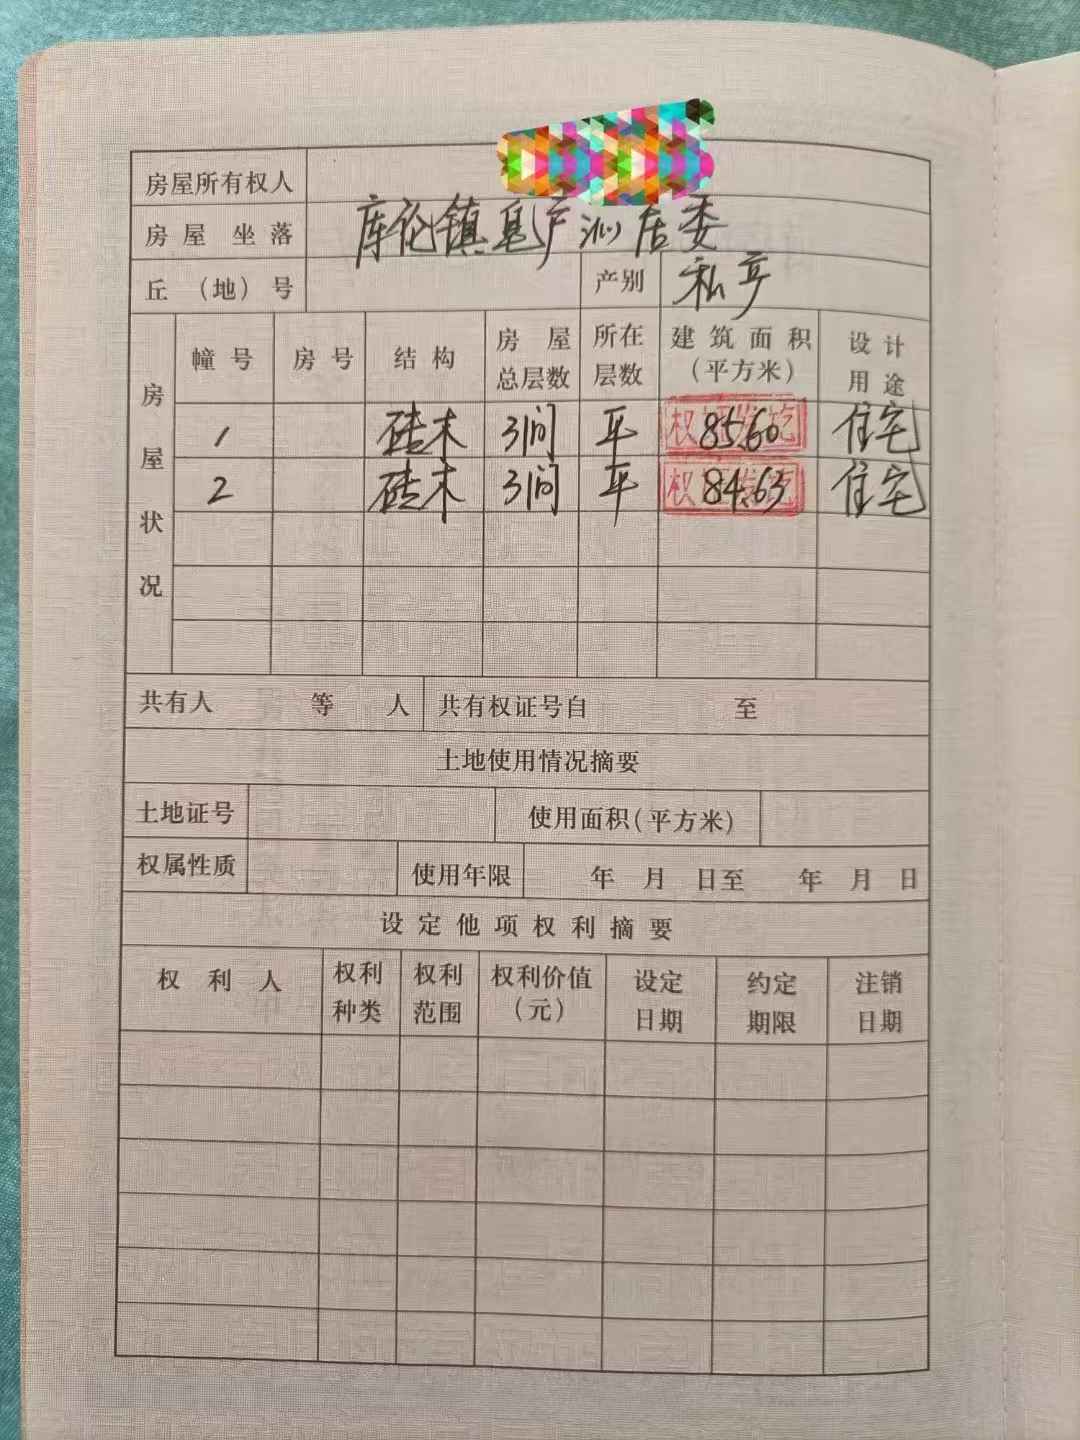 房屋所有权人
房屋坐落 库伦镇 居委
丘（地）号 产别 私产
房屋状况
幢号 房号 结构 房屋总层数 所在层数 建筑面积（平方米） 设计用途
1 砖木 3间 平 85.60 住宅
2 砖木 3间 平 84.63 住宅
共有人 等 人 共有权证号自 至
土地使用情况摘要
土地证号 使用面积(平方米)
权属性质 使用年限 年 月 日至 年 月 日
设定他项权利摘要
权利人 权利种类 权利范围 权利价值（元） 设定日期 约定期限 注销日期